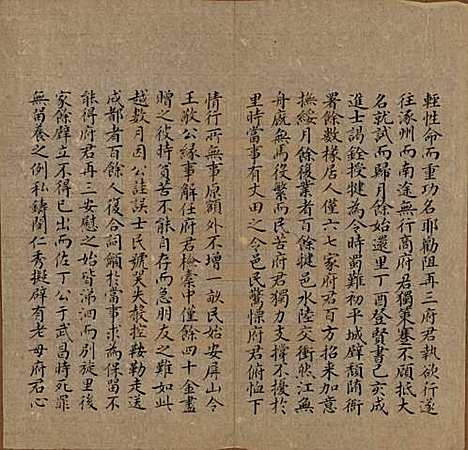 輕性命而重功名耶勸阻再三府君執欲行遂
往涿州而南途無行商府君獨策蹇不顧抵大
名就試而歸月餘始還里丁酉登賢書己亥成
進士謁銓授犍為令時蜀難初平城廨頹隳衙
署餘數椽居人僅六七家府君百方招来加意
撫綏月餘復業者百餘犍邑水陸交衝然江無
舟廐無馬役繁而民苦府君獨力支撐不擾於
里時當事有丈田之令邑民驚惶府君俯恤下
情行所無事原額外不增一畝民始安屏山令
王敬公緣事解任府君檢橐中僅餘四十金盡
贈之彼時負苦不能自存而急朋友之難如此
越數月因公詿誤士民號哭失教控鞍勒走送
成都者百餘人復合詞籲於當事求為保留不
能得府君再三安慰之始皆涕泗而別旋里後
家餘壁立不得已出而佐丁公于武昌時死罪
無留養之例私鑄閻仁秀擬辟有老母府君心